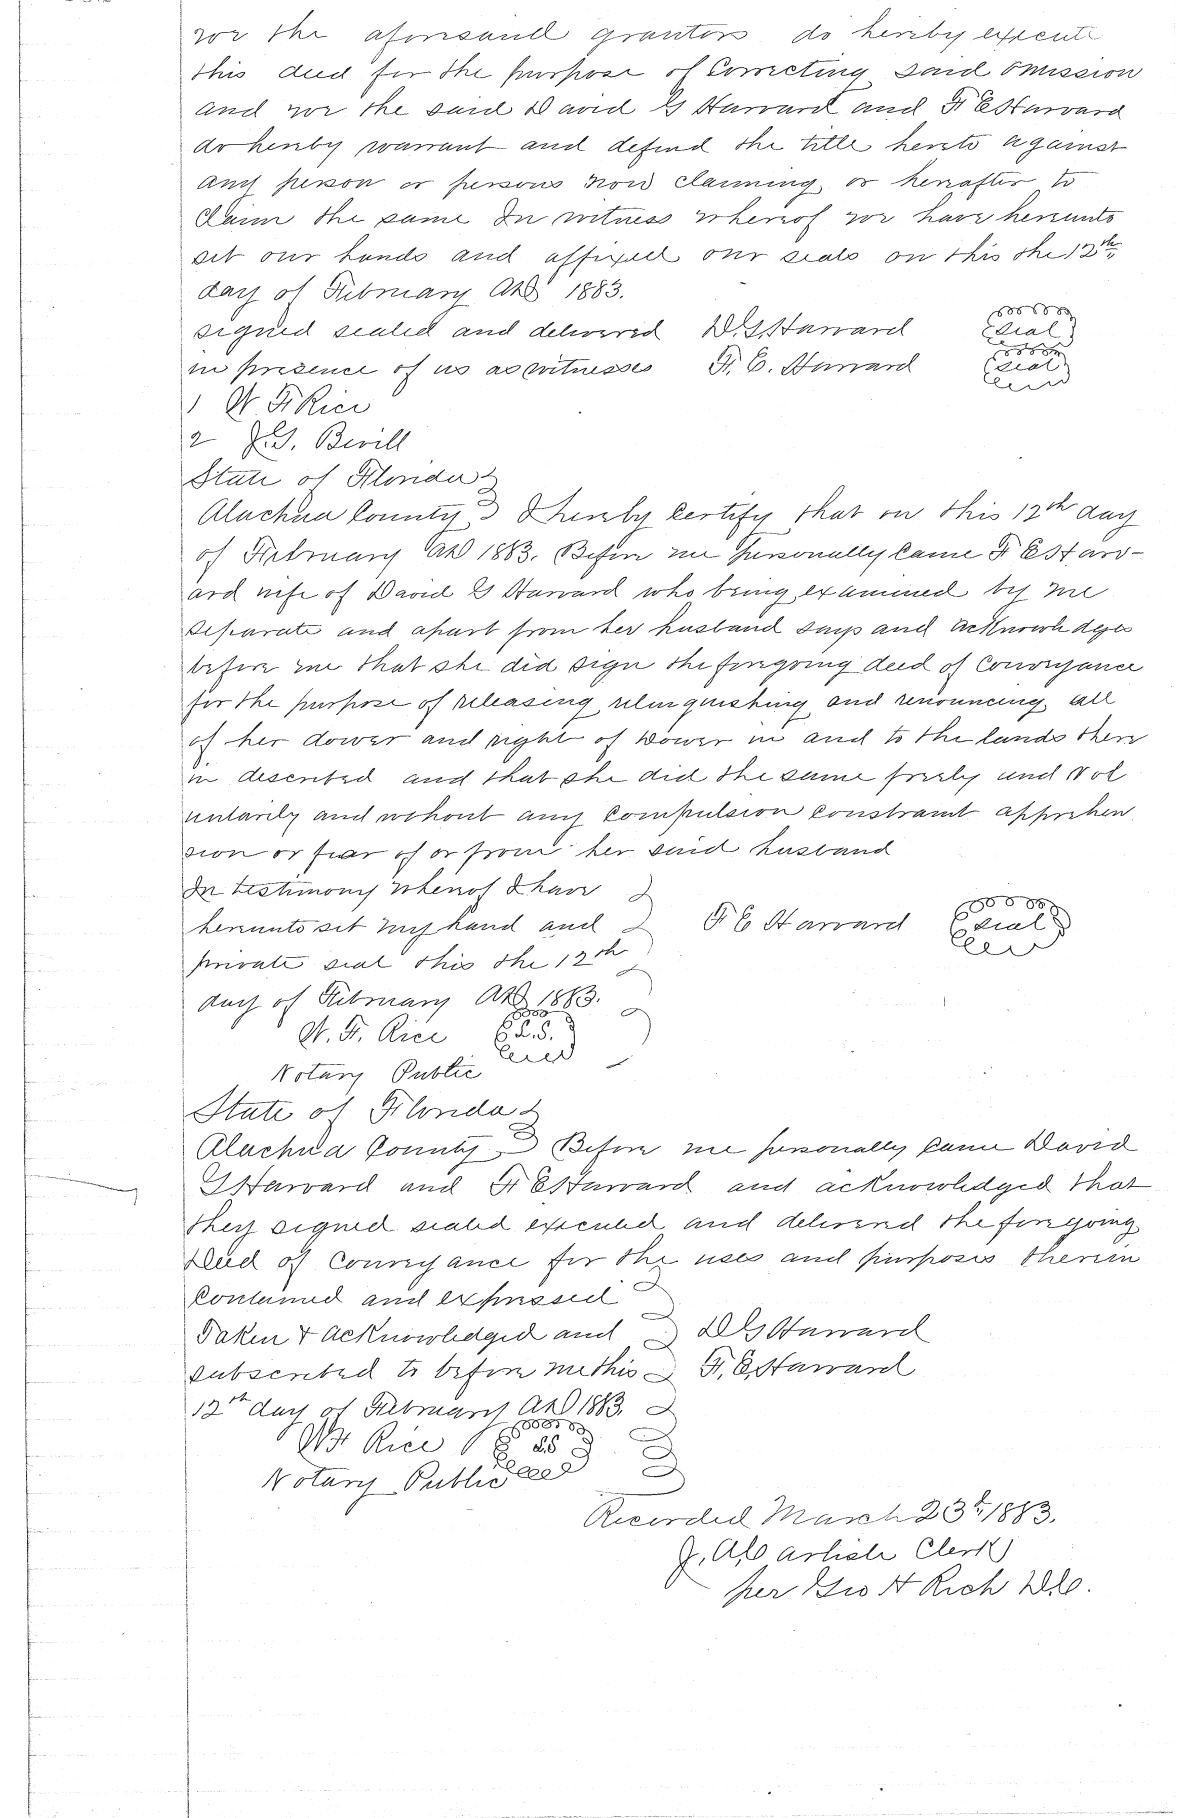 we the aforesaid grantors do hereby execute
this deed for the purpose of Correcting said omission
and we the said David G Harvard and F E Harvard
do hereby warrant and defend the title hereto against
any person or persons now claiming or hereafter to
Claim the same In witness whereof we have hereunto
set our hands and affixed our seals on this the 12th
day of February AD 1883.
signed sealed and delivered D. G. Harvard seal
in presence of us as witnesses F. E. Harvard seal
1 W. F. Rice
2 J. G. Bevill
State of Florida
Alachua County I hereby Certify that on this 12th day
of February AD 1883. Before me Personally Came F E Harv-
ard wife of David G Harvard who being examined by me
separate and apart from her husband says and acknowledges
before me that she did sign the foregoing deed of Conveyance
for the purpose of releasing relinquishing and renouncing all
of her dower and right of Dower in and to the lands there
in described and that she did the same freely and Vol
untarily and without any Compulsion Constraint apprehen
sion or fear of or from her said husband
In testimony whereof I have
hereunto set my hand and F E Harvard seal
private seal this the 12th
day of February AD 1883.
W. F. Rice L.S.
Notary Public
State of Florida
Alachua County Before me personally Came David
G Harvard and F E Harvard and acknowledged that
they signed sealed executed and delivered the foregoing
Deed of Conveyance for the uses and purposes therein
Contained and expressed
Taken & acknowledged and D G Harvard
subscribed to before me this F. E. Harvard
12th day of February AD 1883.
W F Rice LS
Notary Public
Recorded March 23d 1883.
J. A. Carlisle Clerk
per Geo H Rich D.C.